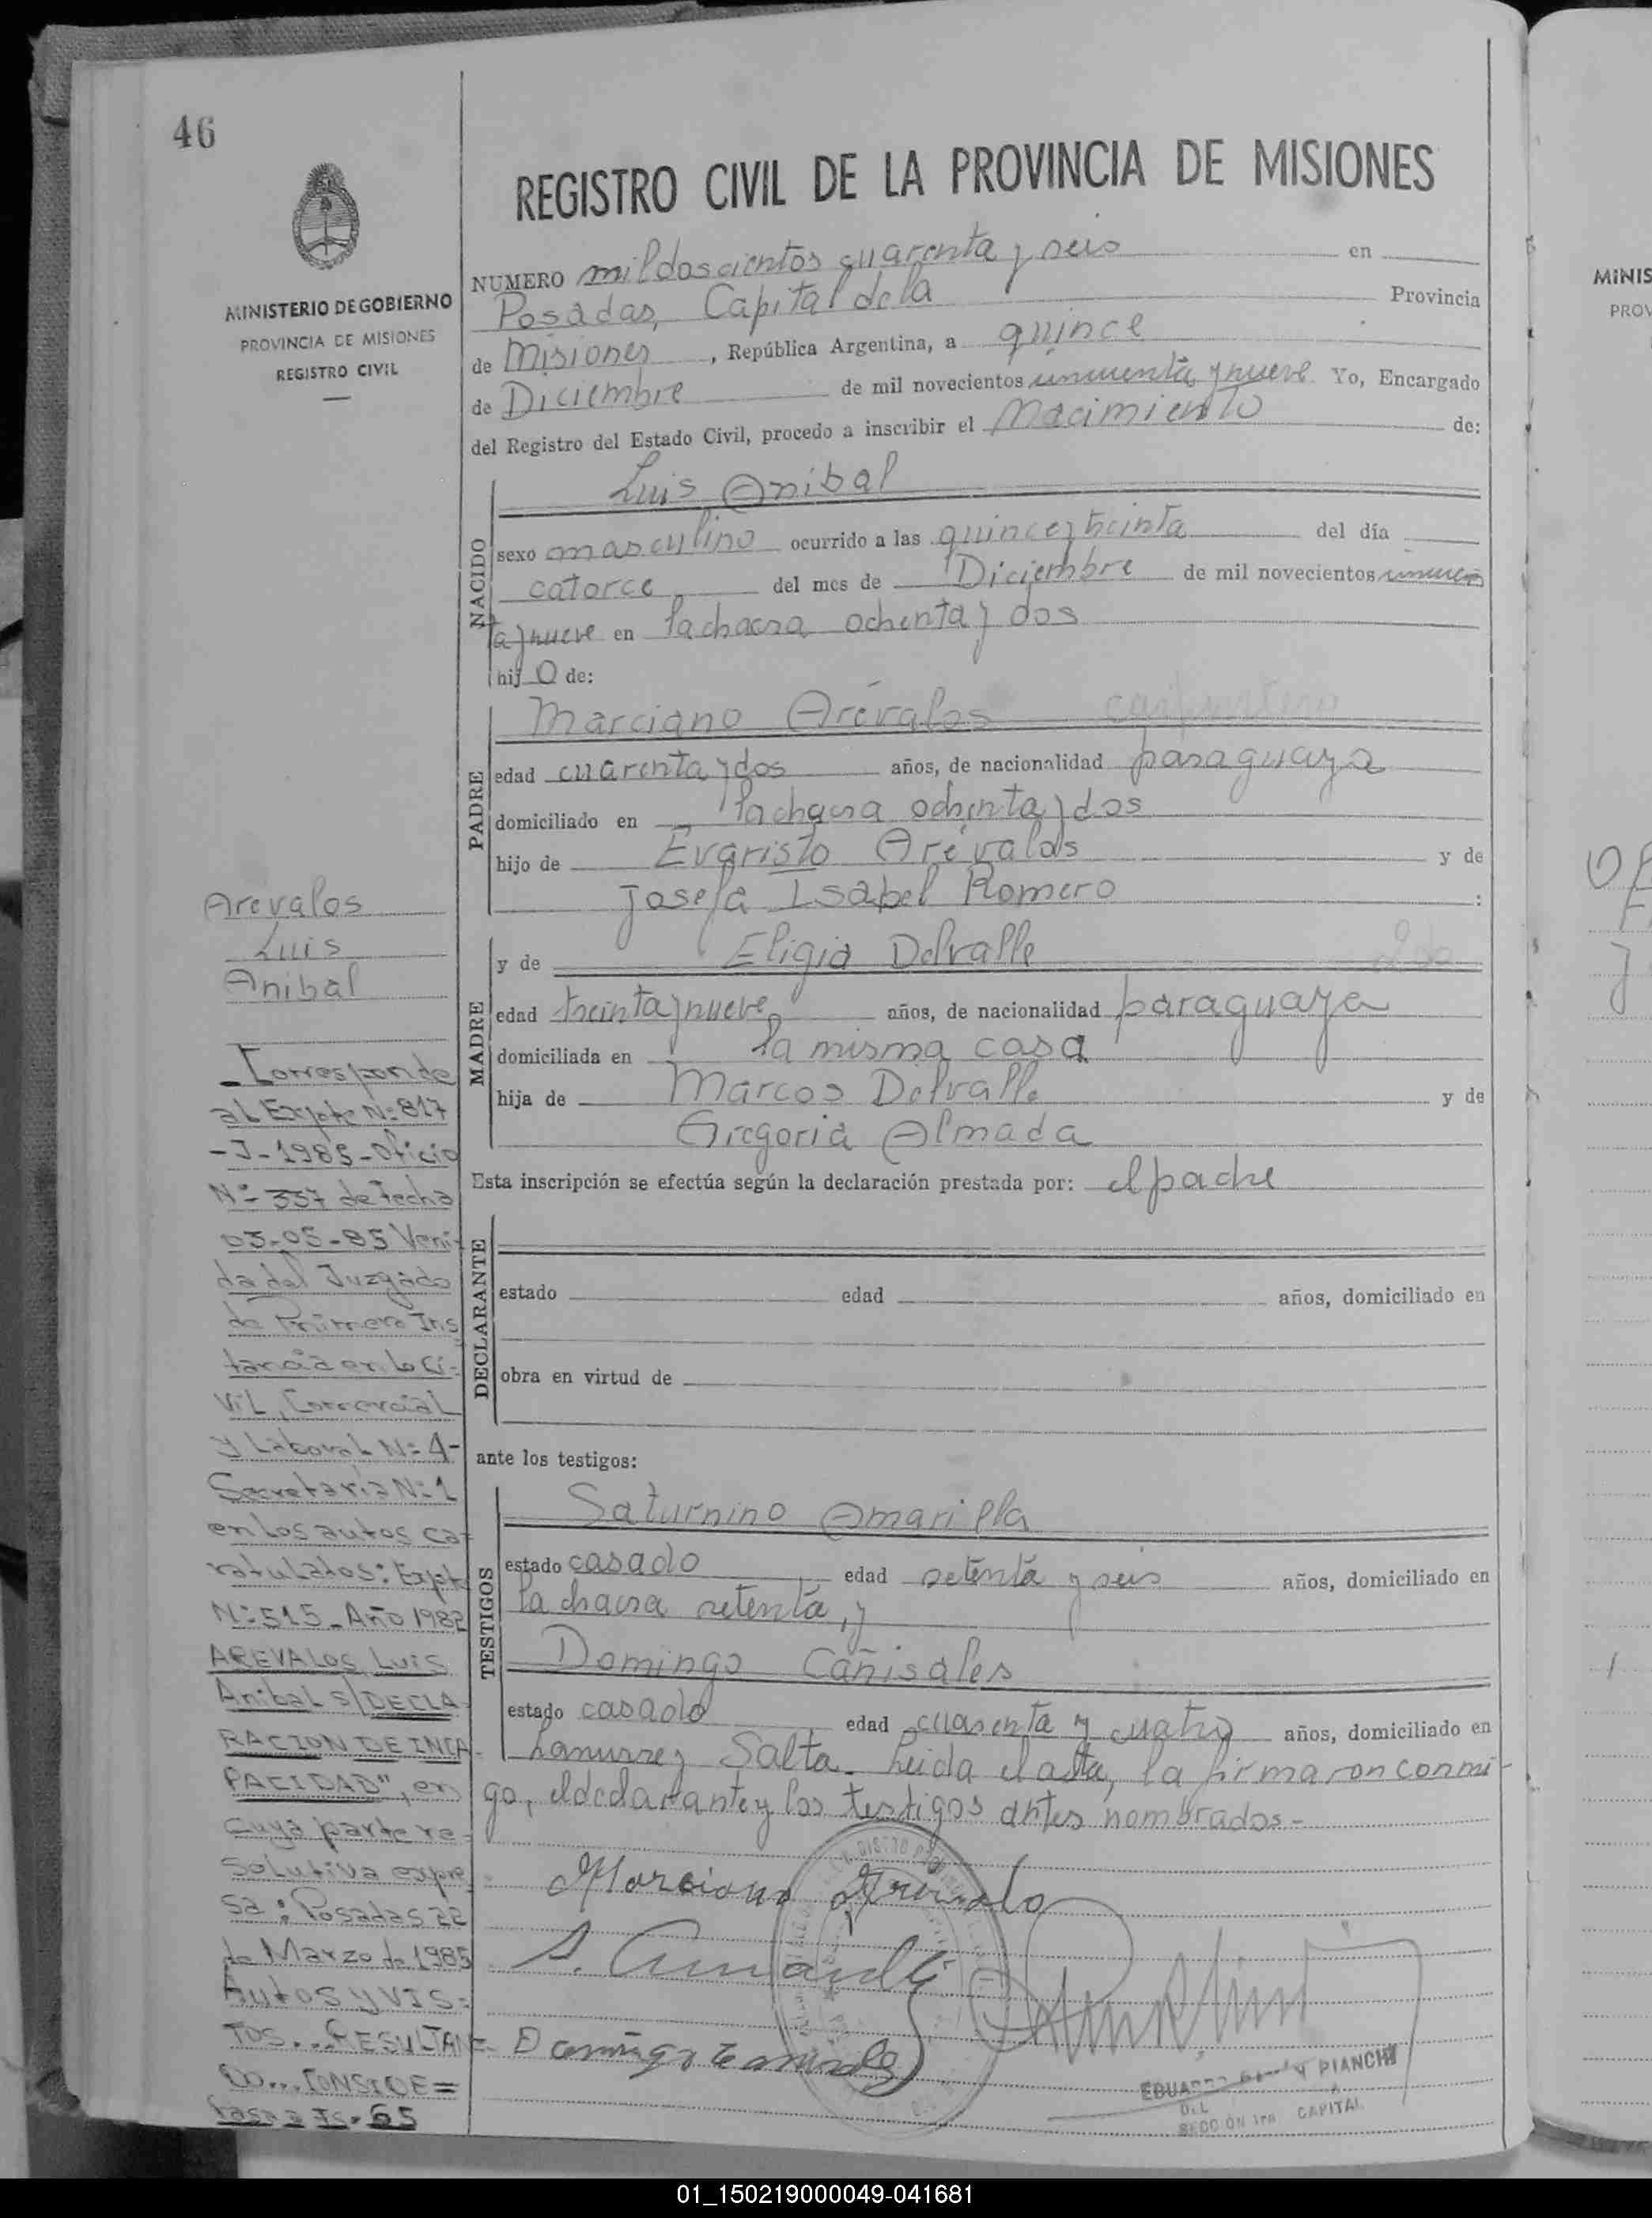 46
MINISTERIO DE GOBIERNO
PROVINCIA DE MISIONES
REGISTRO CIVIL
REGISTRO CIVIL DE LA PROVINCIA DE MISIONES
NUMERO mil doscientos cuarenta y seis en
Posadas, Capital de la Provincia
de Misiones, República Argentina, a quince
de Diciembre de mil novecientos cincuenta y nueve Yo, Encargado
del Registro del Estado Civil, procedo a inscribir el Nacimiento de:
NACIDO
Luis Anibal
sexo masculino ocurrido a las quince y treinta del día
catorce del mes de Diciembre de mil novecientos cincuen
ta y nueve en la chacra ochenta y dos
hijo de:
PADRE
Marciano Arévalos carpintero
edad cuarenta y dos años, de nacionalidad paraguaya
domiciliado en la chacra ochenta y dos
hijo de Evaristo Arévalos y de
Josefa Isabel Romero :
MADRE
y de Eligia Delvalle
edad treinta y nueve años, de nacionalidad paraguaya
domiciliada en la misma casa
hija de Marcos Delvalle y de
Gregoria Almada
Esta inscripción se efectúa según la declaración prestada por: el padre
DECLARANTE
estado edad años, domiciliado en
obra en virtud de
ante los testigos:
TESTIGOS
Saturnino Amarilla
estado casado edad setenta y seis años, domiciliado en
la chacra setenta, y
Domingo Cañisales
estado casado edad cuarenta y cuatro años, domiciliado en
Lanusse y Salta. Leida el acta, la firmaron conmi-
go, el declarante y los testigos antes nombrados.-
Marciano Arevalo
S. Amarilla
Domingo
EDUARDO PIANCHI
DEL
SECCION 1ra CAPITAL
Arevalos
Luis
Anibal
- Corresponde
al Expte Nº 817
- J - 1985 - Oficio
Nº 337 de fecha
03-05-85 Veni-
da del Juzgado
de Primera Ins
tancia en lo Ci-
vil, Comercial
y Laboral Nº 4-
Secretaria Nº 1
en los autos ca-
ratulados: Expte
Nº 515 - Año 1982
AREVALOS LUIS
Anibal s/DECLA
RACION DE INCA-
PACIDAD", en
cuya parte re-
solutiva expre
sa: Posadas 22
de Marzo de 1985
Autos y VIS=
TOS... RESULTAN-
DO... CONSIDE=
pasa a Fs. 65
MINIS
PROV
01_150219000049-041681